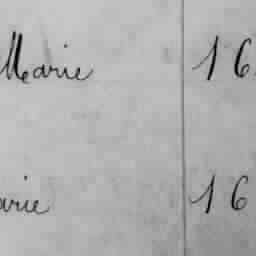 Marie 16
arie 16